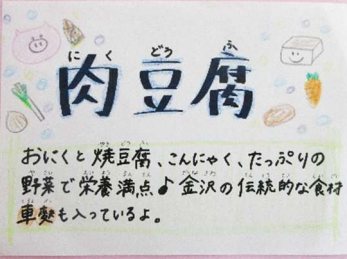 肉豆腐
おにくと焼豆腐、こんにゃく、たっぷりの
野菜で栄養満点♪金沢の伝統的な食材
車麩も入っているよ。